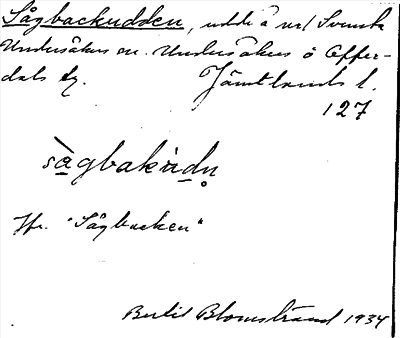 Sågbackudden, udde å nr1 Svenska
Undersåkers sn. Undersåkers o Offer-
dals tg. Jämtlands l.
127
sàgbakùdn̥
Jfr. "Sågbacken"
Bertil Blomstrand 1934